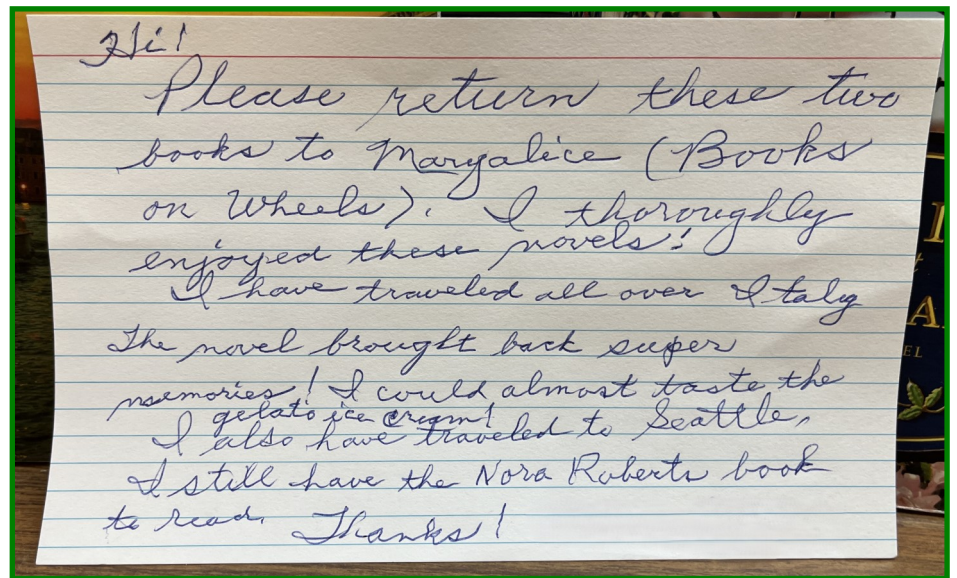 Hi!
Please return these two
books to Maryalice (Books
on Wheels). I thoroughly
enjoyed these novels!
I have traveled all over Italy
The novel brought back super
memories! I could almost taste the
gelato ice cream!
I also have traveled to Seattle.
I still have the Nora Roberts book
to read. Thanks!